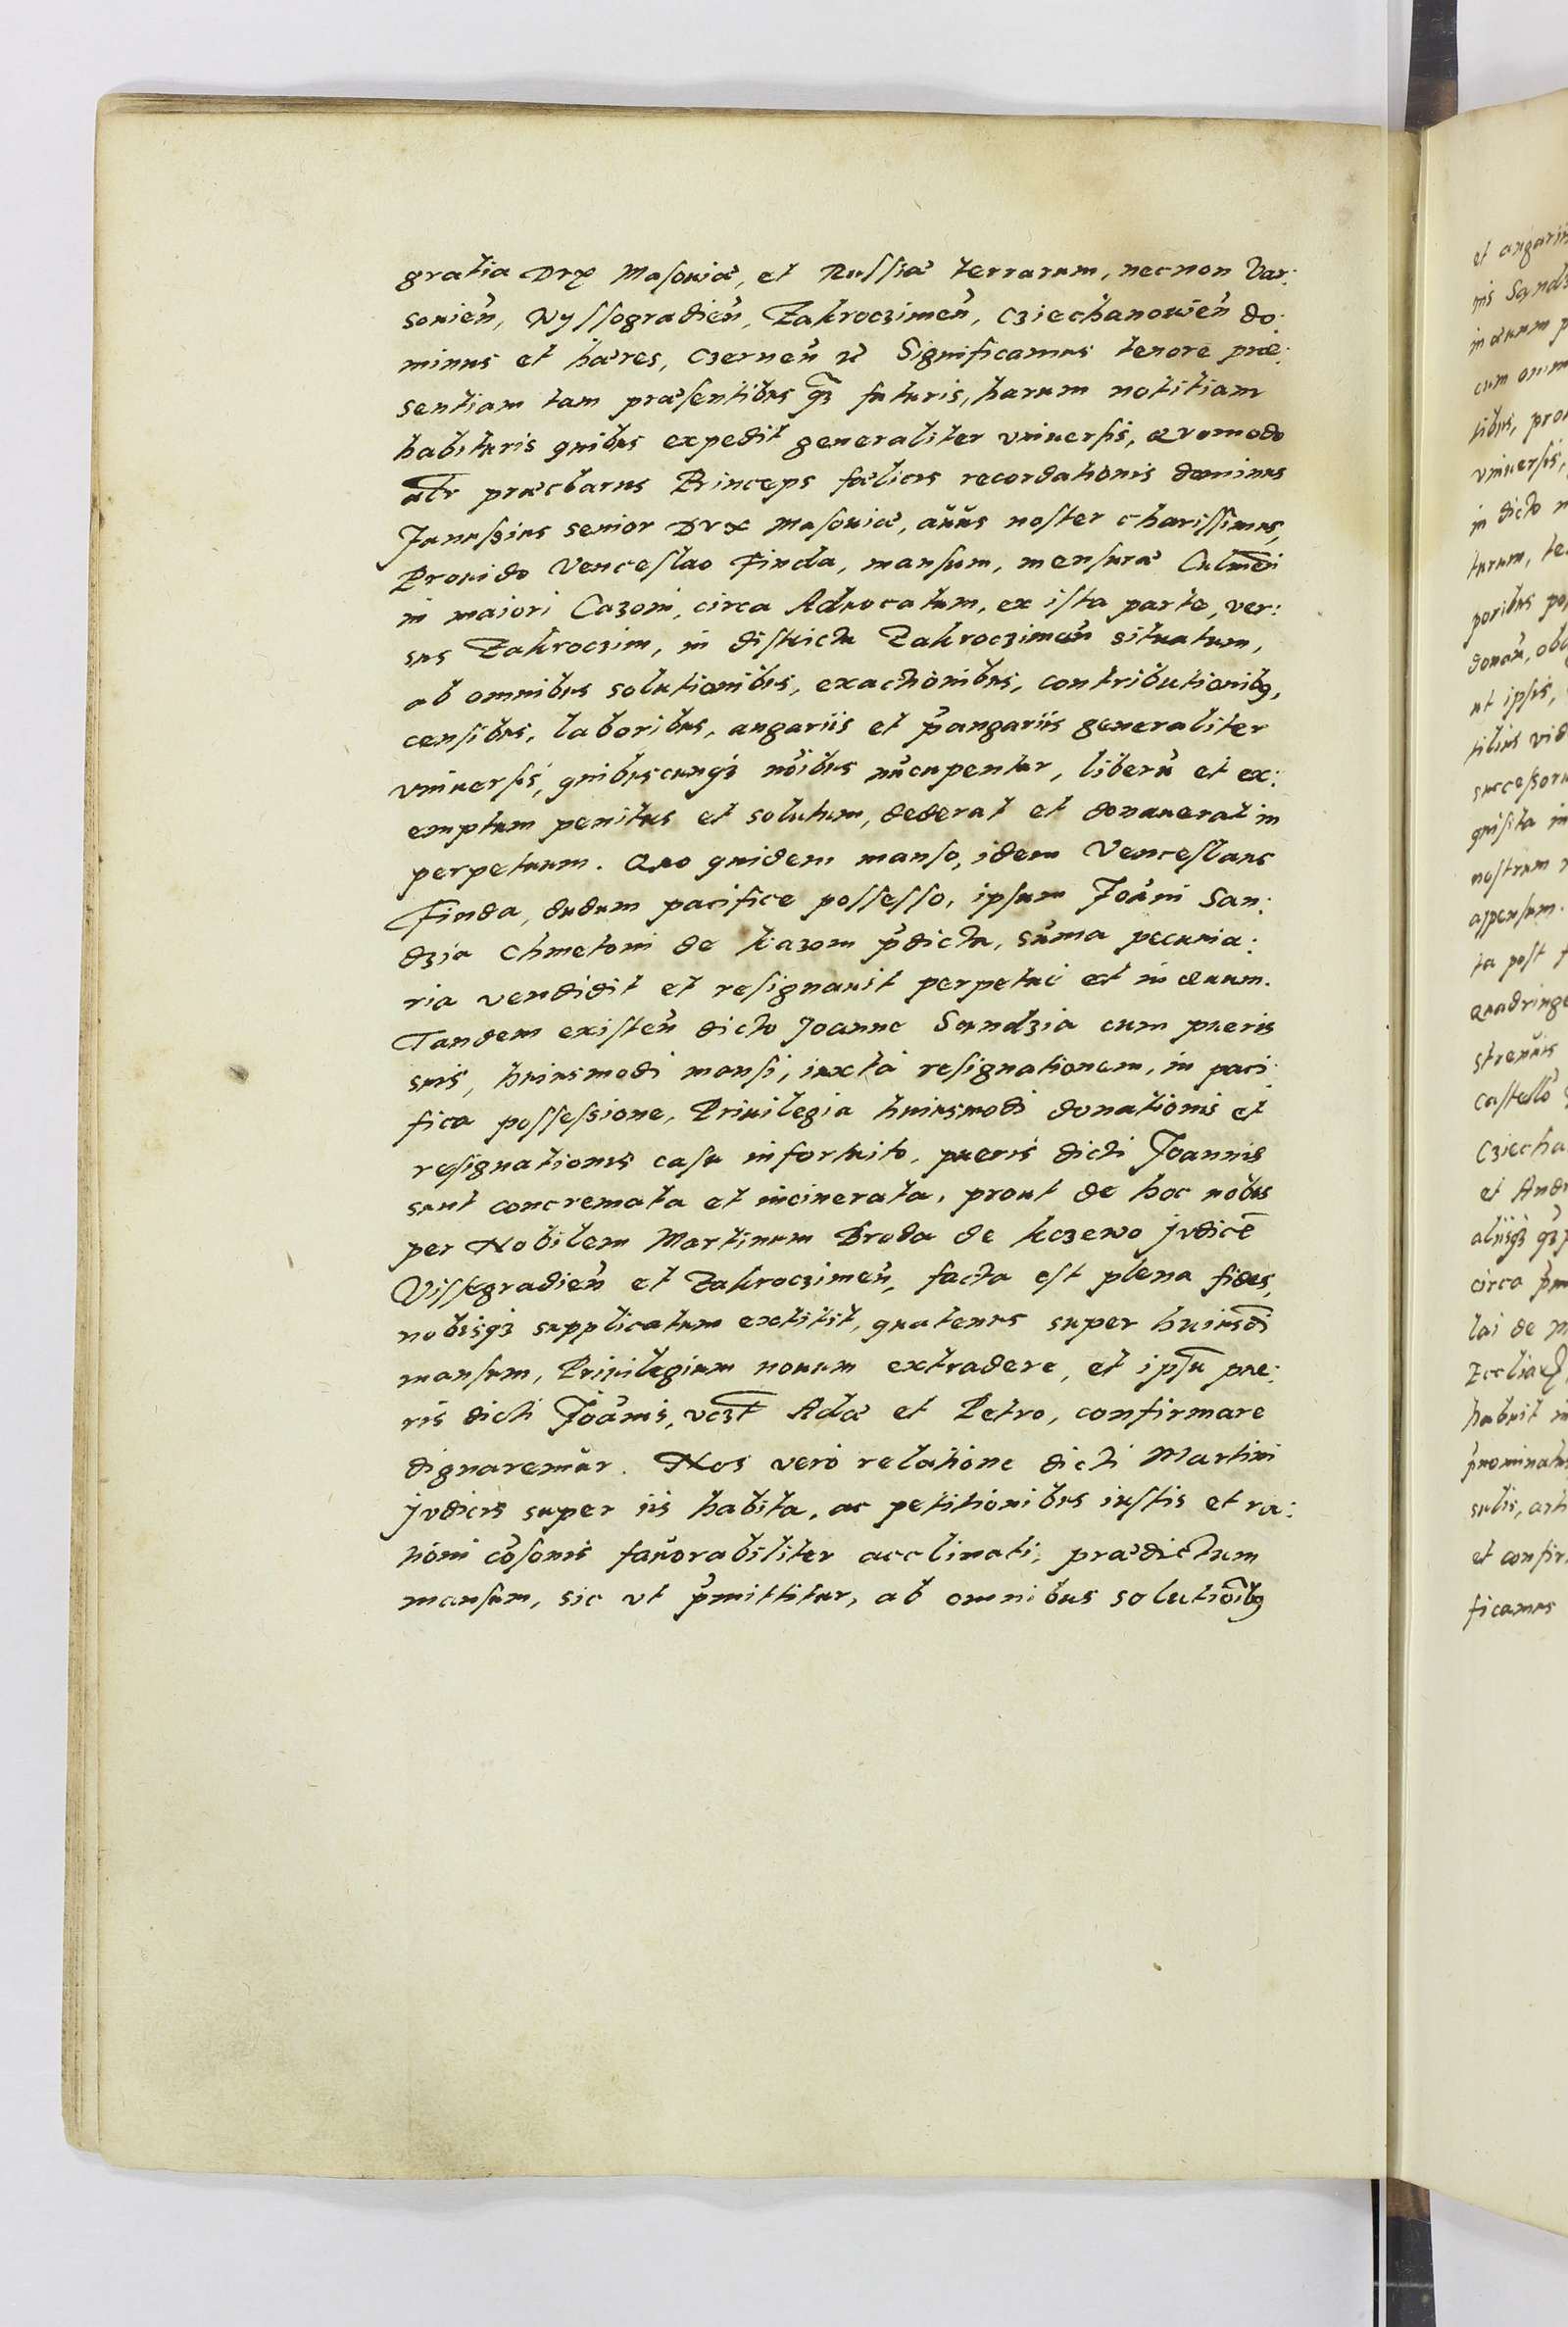 gratia Dvx Masouiæ, et Russiæ terrarum, necnon Var:
souień, Wyssogradień, Zakroczimeń, Cziechanowień do:
minus et hæres, Czerneń etc Significamus tenore præ:
sentiam tam præsentibus q̃ꝫ futuris, harum notitiam
habituris quibus expedit generaliter vniuersis, Qvomodo
al̃r præclarus Princeps fœlicis recordationis dominus
Janussius senior Dvx Masouiæ, auus noster charissimus,
Prouido Venceslao Finda, mansum, mensuræ Culmeñ
in maiori Cazoni, circa Aduocatum, ex ista parte, ver:
sus Zakroczim, in districtu Zakroczimeń situatum,
ab omnibus solutionibus, exactionibus, contributionibꝰ,
censibus, laboribus, angariis et p̃angariis generaliter
vniuersis, quibuscunqꝫ nõibus nũcupentur, liberũ et ex:
emptum penitus et solutum, dederat et donauerat in
perpetuum. Quo quidem manso, idem Venceslaus
Finda, dudum pacifice possesso, ipsum Joãni San:
dzia Chmetoni de Kazom p̃dicta, sũma pecunia:
ria vendidit et resignauit perpetue et in æuum.
Tandem existeń dicto Joanne Sandzia cum pueris
suis, huiusmodi mansi, iuxta resignationem, in paci:
fica possessione, Priuilegia huiusmodi donationis et
resignationis casu infortuito, pueris dicti Joannis
sunt concremata et incinerata, prout de hoc nobis
per Nobilem Martinum Broda de Kczewo jvdicẽ
Vissegradień et Zakroczimeń, facta est plena fides,
nobisqꝫ supplicatum extitit, quatenus super huiusõi
mansum, Priuilegium nouum extradere, et ipsũ pue:
ris dicti Joãnis, vczt̃ Adæ et Petro, confirmare
dignaremur. Nos vero relatione dicti Martini
jvdicis super iis habita, ac petitionibus iustis et ra:
tioni cõsonis fauorabiliter acclinati, prædictum
mansum, sic vt p̃mittitur, ab omnibus solutiõibꝰ
et angariis
nis Sandz
in æuum p
cum omn
tibus, pro
vniuersis,
in dicto m
turum, te
poribus po
donań, ob
ut ipsis,
tilius vid
successoru
quisita in
nostrum
appensum.
ta post
Quadringe
strenuis
castello
Cziecha
et Andr
aliisqꝫ
circa
lai de
habuit in
et confir
ficamus